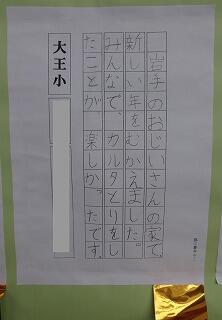 岩手のおじいさんの家で、
新しい年をむかえました。
みんなで、カルタとりをし
たことが、楽しかったです。
大王小